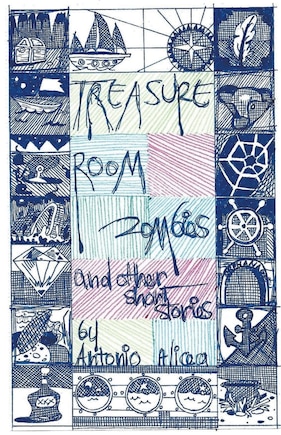 TREASURE
ROOM
ZOMBIES
and other
short
stories
by
Antonio Alicea
XXX